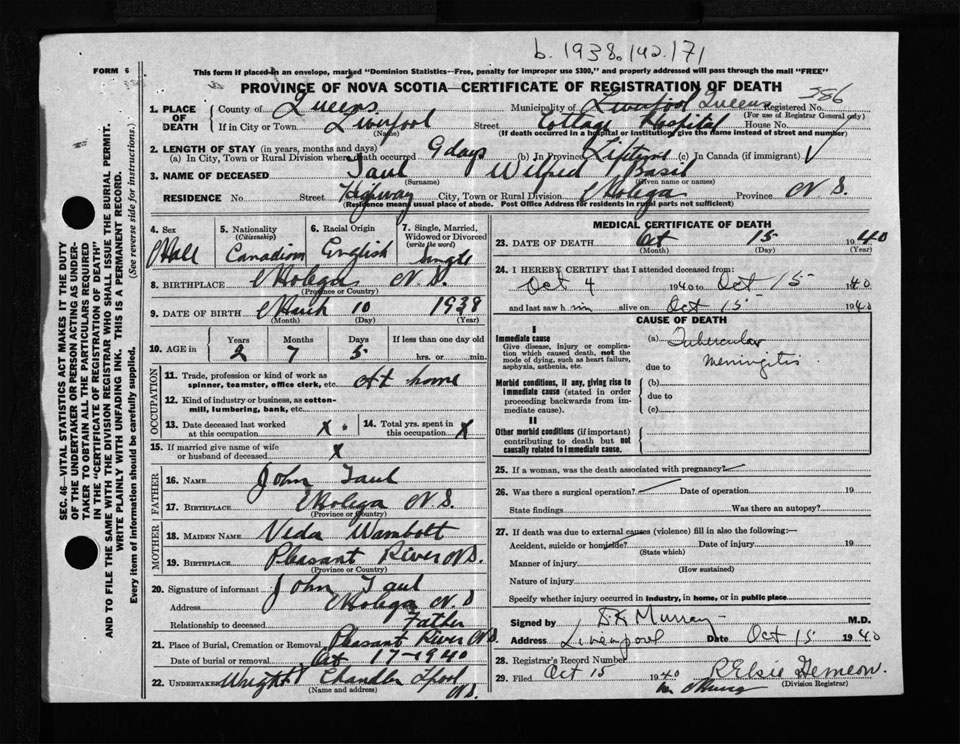 b. 1938. 142.171
FORM 6
This form if placed in an envelope, marked "Dominion Statistics—Free, penalty for improper use $300," and properly addressed will pass through the mail "FREE"
PROVINCE OF NOVA SCOTIA—CERTIFICATE OF REGISTRATION OF DEATH
386
1. PLACE OF DEATH County of Queens Municipality of Liverpool Queens Registered No.
(For use of Registrar General only)
If in City or Town Liverpool Street Cottage Hospital House No.
(Name) (If death occurred in a hospital or institution, give the name instead of street and number)
2. LENGTH OF STAY (in years, months and days)
(a) In City, Town or Rural Division where death occurred 9 days (b) In Province Lifetime (c) In Canada (if immigrant)
3. NAME OF DECEASED Taul Wilfred Basil
(Surname) (Given name or names)
RESIDENCE No Street Highway City, Town or Rural Division Molega Province N.S.
(Residence means usual place of abode. Post Office Address for residents in rural parts not sufficient)
4. Sex Male
5. Nationality (Citizenship) Canadian
6. Racial Origin English
7. Single, Married, Widowed or Divorced (write the word) Single
8. BIRTHPLACE Molega N.S.
(Province or Country)
9. DATE OF BIRTH March 10 1938
(Month) (Day) (Year)
10. AGE in Years Months Days If less than one day old
2 7 5 hrs. or min.
OCCUPATION
11. Trade, profession or kind of work as spinner, teamster, office clerk, etc. At home
12. Kind of industry or business, as cotton-mill, lumbering, bank, etc.
13. Date deceased last worked at this occupation X
14. Total yrs. spent in this occupation X
15. If married give name of wife or husband of deceased X
FATHER
16. NAME John Taul
17. BIRTHPLACE Molega N.S.
(Province or Country)
MOTHER
18. MAIDEN NAME Veda Wambolt
19. BIRTHPLACE Pleasant River N.S.
(Province or Country)
20. Signature of informant John Taul
Address Molega N.S
Relationship to deceased Father
21. Place of Burial, Cremation or Removal Pleasant River N.S.
Date of burial or removal Oct 17-1940
22. UNDERTAKER Wright Chandler Lpool N.S.
(Name and address)
MEDICAL CERTIFICATE OF DEATH
23. DATE OF DEATH Oct 15 1940
(Month) (Day) (Year)
24. I HEREBY CERTIFY that I attended deceased from:
Oct 4 1940 to Oct 15 1940
and last saw h im alive on Oct 15 1940
CAUSE OF DEATH
I
Immediate cause
Give disease, injury or complication which caused death, not the mode of dying, such as heart failure, asphyxia, asthenia, etc.
(a) Tubercular Meningitis
due to
Morbid conditions, if any, giving rise to immediate cause (stated in order proceeding backwards from immediate cause).
(b)
due to
(c)
II
Other morbid conditions (if important) contributing to death but not causally related to immediate cause.
25. If a woman, was the death associated with pregnancy?
26. Was there a surgical operation? Date of operation 19
State findings Was there an autopsy?
27. If death was due to external causes (violence) fill in also the following:—
Accident, suicide or homicide? Date of injury 19
(State which)
Manner of injury
(How sustained)
Nature of injury
Specify whether injury occurred in industry, in home, or in public place
Signed by Murray M.D.
Address Liverpool Date Oct 15 1940
28. Registrar's Record Number
29. Filed Oct 15 1940 Elsie
(Division Registrar)
SEC. 46—VITAL STATISTICS ACT MAKES IT THE DUTY OF THE UNDERTAKER OR PERSON ACTING AS UNDERTAKER TO OBTAIN ALL THE PARTICULARS REQUIRED IN THE "CERTIFICATE OF REGISTRATION OF DEATH" AND TO FILE THE SAME WITH THE DIVISION REGISTRAR WHO SHALL ISSUE THE BURIAL PERMIT.
WRITE PLAINLY WITH UNFADING INK. THIS IS A PERMANENT RECORD.
Every item of information should be carefully supplied. (See reverse side for instructions.)